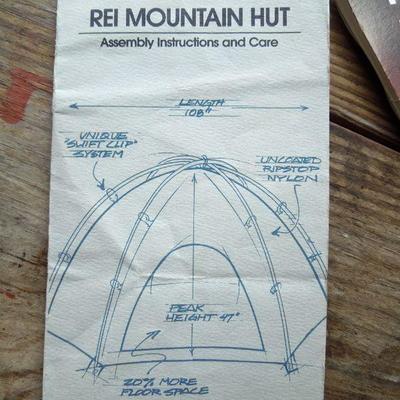 REI MOUNTAIN HUT
Assembly Instructions and Care
LENGTH
108"
UNIQUE
"SWIFT CLIP"
SYSTEM
UNCOATED
RIPSTOP
NYLON
PEAK
HEIGHT 47"
20% MORE
FLOOR SPACE